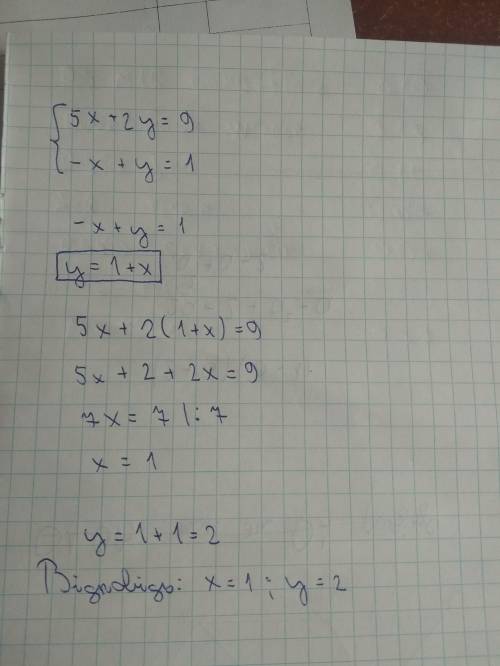 5x + 2y = 9
-x + y = 1
-x + y = 1
y = 1 + x
5x + 2(1+x) = 9
5x + 2 + 2x = 9
7x = 7 | : 7
x = 1
y = 1 + 1 = 2
Відповідь: x = 1; y = 2